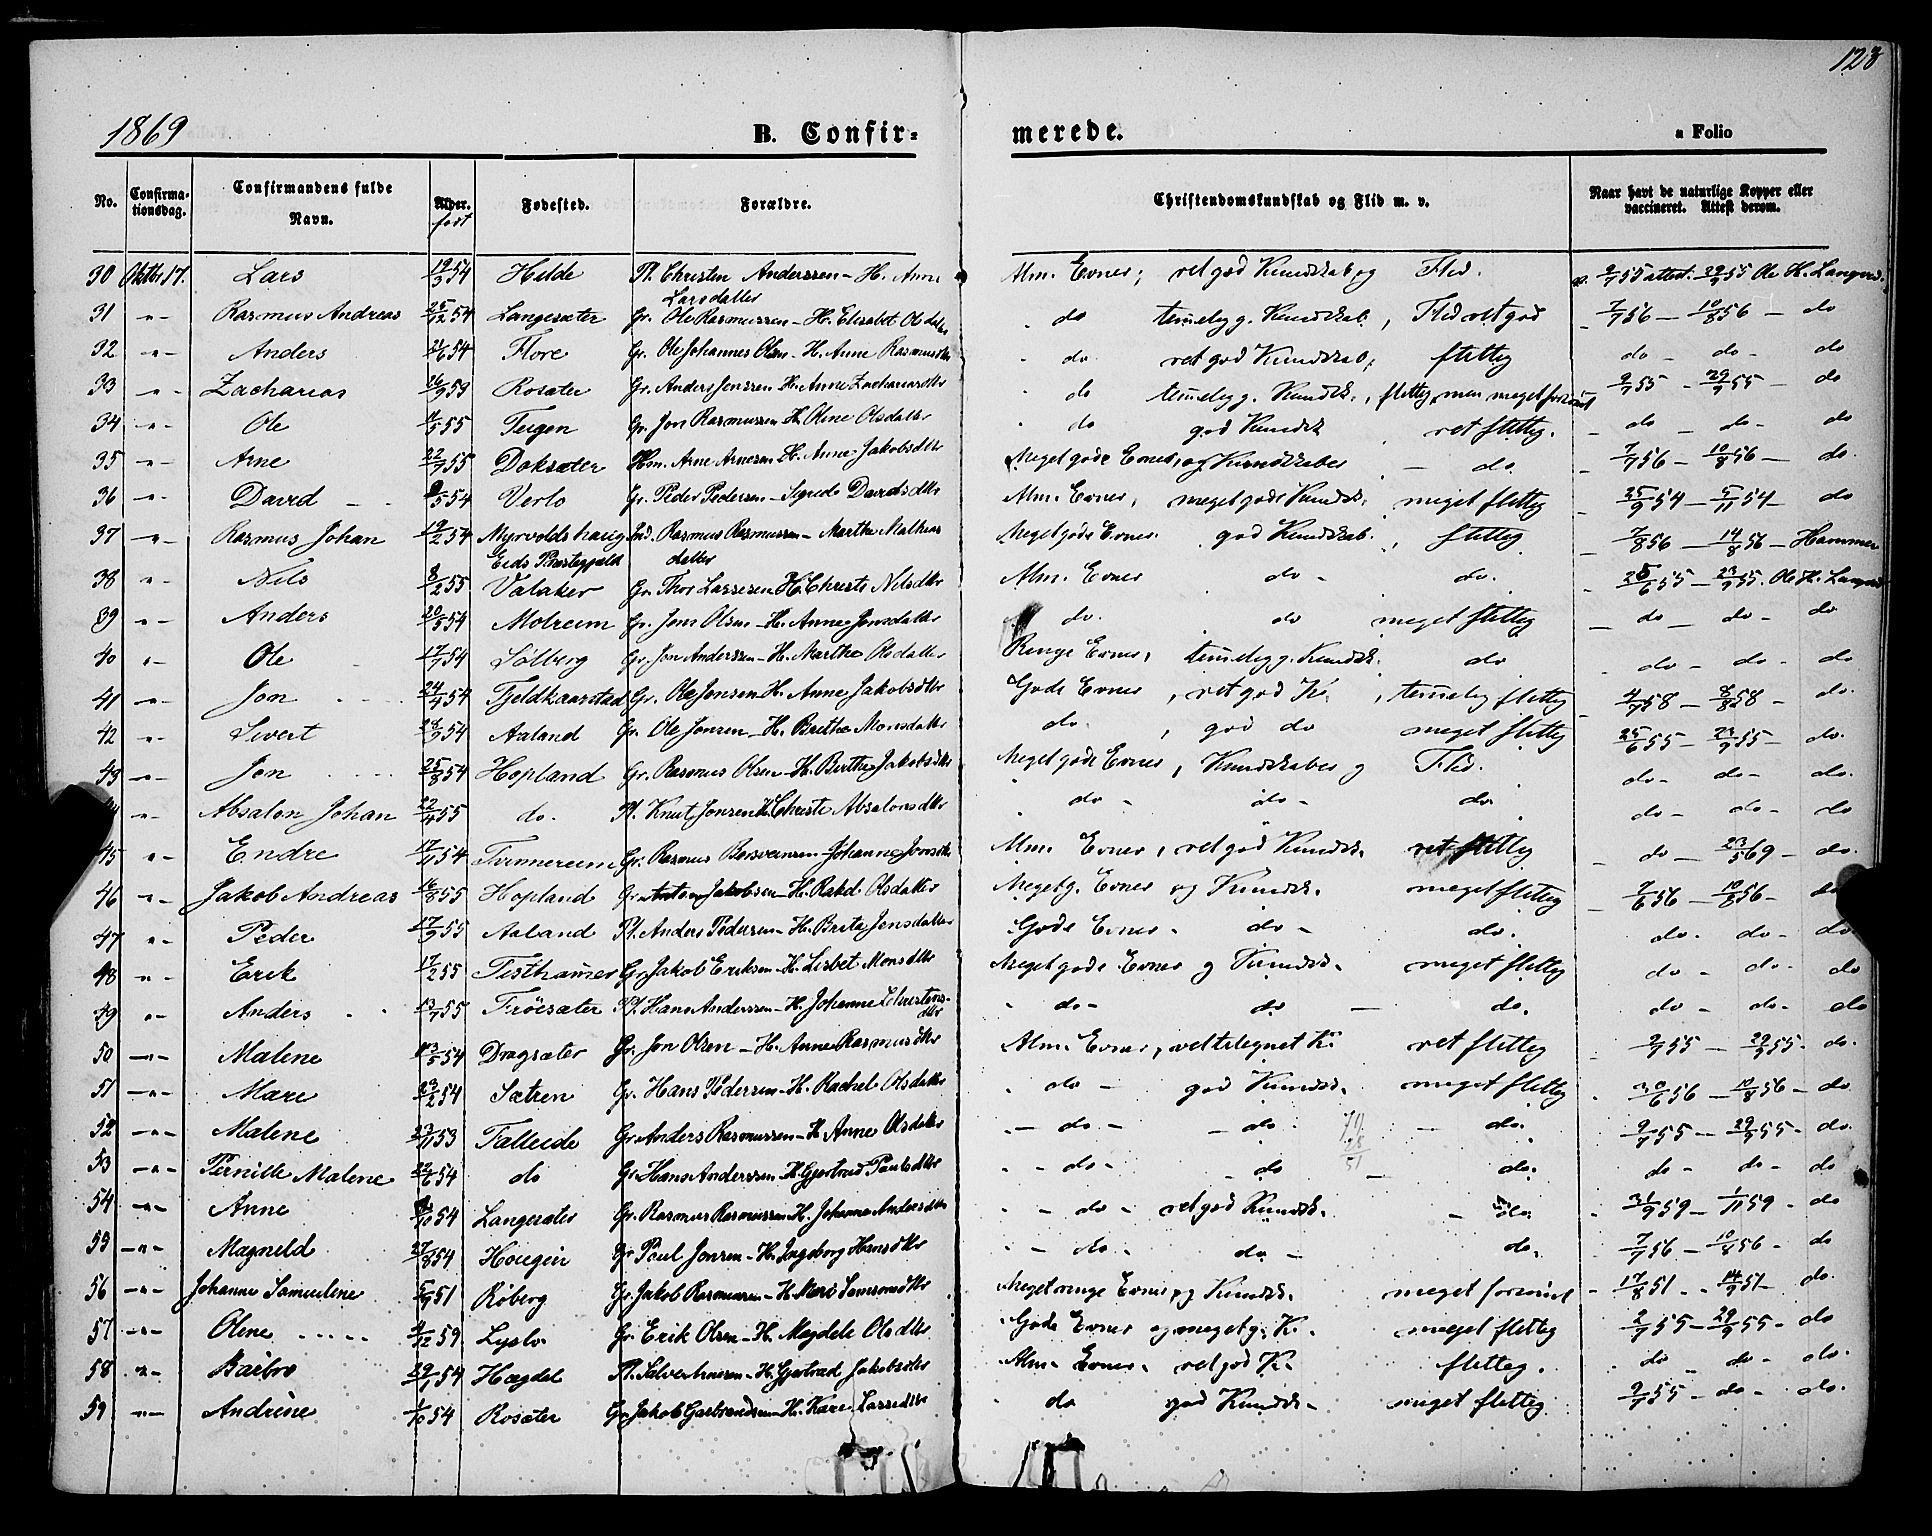 128
1869 B. Confir= merede. a Folio
No. Confirma-tionsdag. Confirmandens fulde Navn. Alder. født Fødested. Forældre. Christendomskundskab og Flid m. v. Naar havt de naturlige Kopper eller vaccineret. Attest derom.
30 Oktbr 17. Lars 19/3 54 Hilde Pl. Christen Anderssen - H. Anne Larsdatter Alm. Evner, ret god Kundskab og Flid. 2/7 55 attest. 29/9 55 Ole H.
31 -"- Rasmus Andreas 25/12 54 Langesæter Gr. Ole Rasmussen - H. Elisabet Olsdatter do temelig g. Kundskab, Flid ret god - 7/7 56 - 10/8 56 - do
32 -"- Anders 54 Flore Gr. Ole Johannes Olsen - H. Anne Rasmusdtr do ret god Kundskab, flittig do - do - do
33 -"- Zacharias 26/9 59 Rosæter Gr. Anders Jenssen H. Anne Zachariasdtr do temelig g. Kundsk., flittig, men meget forsømt 2/7 55 - 29/9 55 - do
34 -"- Ole 55 Teigen Gr. Jon Rasmussen H. Oline Olsdatter do god Kundsk ret flittig. - do - do - do
35 -"- Arne 22/7 55 Doksæter Hm. Arne Arnesen H. Anne Jakobsdtr Meget gode Evner, og Kundskaber - do - 7/7 56 - 10/8 56 - do.
36 -"- David 54 Verlo Gr. Peder Pedersen - Sigrid Davidsdtr Alm. Evner, meget gode Kundsk. meget flittig - 25/9 54 - 5/11 54 - do
37 -"- Rasmus Johan 19/2 54 Myrvoldshaug Eids Præstegjeld Ind. Rasmus Rasmussen - Marthe Mathias datter Meget gode Evner. god Kundskab., flittig - 7/8 56 - 14/8 56 - Hammer
38 -"- Nils 8/2 55 Valaker Gr. Thor Lassesen H. Christi Nilsdtr Alm. Evner do - do. - 25/6 55 - 23/9 55. Ole H.
39 -"- Anders 20/5 54 Molreim Gr. Jens Olsen - H. Anne Jonsdatter do. do meget flittig - do - do - do
40 -"- Ole 17/7 54 Sølberg Gr. Jon Anderssen - H. Marthe Olsdatter Ringe Evner, temelig g. Kundsk. do do - do - do
41 -"- Jon 24/4 54 Fjeldkaarstad Gr. Ole Jensen H. Anne Jakobsdtr Gode Evner, ret god K., temelig flittig - 4/7 58 - 8/8 58 - do.
42 -"- Sivert 28/9 54 Aaland Gr. Ole Jonsen - H. Brithe Monsdatter do., god do meget flittig 25/6 55 - 23/9 55 - do.
43 -"- Jon 25/8 54 Hopland Gr. Rasmus Olsen - H. Berthe Jakobsdtr Meget gode Evner, Kundskaber og Flid. do - do - do.
-"- Absalon Johan 22/4 55 do. Pl. Knut Jonsen H. Christi Absalonsdtr do - do - do do - do - do
45 -"- Endre 17/11 54 Tvinnereim Gr. Rasmus Johanne Jonsdtr Alm. Evner, ret god Kundsk. ret flittig - do - 23/5 69 - do.
46 -"- Jakob Andreas 16/8 55 Hopland Gr. Anton Jakobsen - H. Rakel Olsdatter Meget g. Evner og Kundsk. meget flittig - 7/6 56 - 10/8 56 - do
47 -"- Peder 17/9 55 Aaland Pl. Anders Pedersen - H. Brite Jensdatter Gode Evner - do - do. do - do - do
48 -"- Erik 17/2 55 Festhamer Gr. Jakob Eriksen - H. Lisbet Monsdtr Meget gode Evner og Kundsk. meget flittig do - do - do
49 -"- Anders 13/7 55 Frøisæter Pl. Hans Anderssen - H. Johanne Christens-dtr - do - do - do. do - do - do
50 -"- Malene 54 Dragsæter Gr. Jon Olsen - H. Anne Rasmusdtr Alm. Evner, vel tilegnet K. ret flittig - 2/7 55 - 29/9 55 - do.
51 -"- Mari 23/2 54 Sætren Gr. Hans Pedersen - H. Rachel Olsdatter - do - god Kundsk. meget flittig - 30/6 56 - 10/8 56 - do
52 -"- Malene 53 Talleide Gr. Anders Rasmussen - H. Anne Olsdatter - do - - do - - do. - 2/7 55 - 29/9 55 - do.
53 -"- Pernille Malene 22/6 54 do Gr. Hans Anderssen H. Gjertrud Paulsdtr - - do - do - do. do - do - do
54 -"- Anne 54 Langesæter Gr. Rasmus Rasmussen H. Johanne Andersdtr - - do - ret god Kundsk. - do. 59 - 1/11 59 - do
55 -"- Magnild 27/8 54 Hougen Gr. Paul Jonsen - H. Ingeborg Hansdtr - - do - do - do. - 7/7 56 - 10/8 56 - do
56 -"- Johanne Samueline 5/9 51 Røberg Gr. Jakob Rasmussen - H. Mari Meget ringe Evner og Kundsk. meget forsømt - 17/8 51 - 14/9 51 - do.
57 -"- Oline 59 Lyslo Gr. Erik Olsen - H. Magdeli Olsdtr Gode Evner og meget g. K. meget flittig 2/7 55 - 29/9 55 - do.
58 -"- Barbro 29/7 54 Hægdal Pl. H. Gjertrud Jakobsdtr Alm. Evner. ret god K. flittig. do - do - do.
59 -"- Andrine 54 Rosæter Gr. Jakob H. Kari Lassedtr do god Kundsk. meget flittig 2/7 55 - do - do.